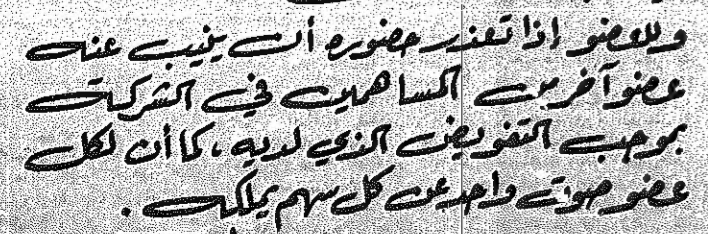 وللعضو إذا تعذر حضوره أن ينيب عنه
عضواً آخر من المساهمين في الشركة
بموجب التفويض الذي لديه ، كما أن لكل
عضو صوت واحد عن كل سهم يملكه .